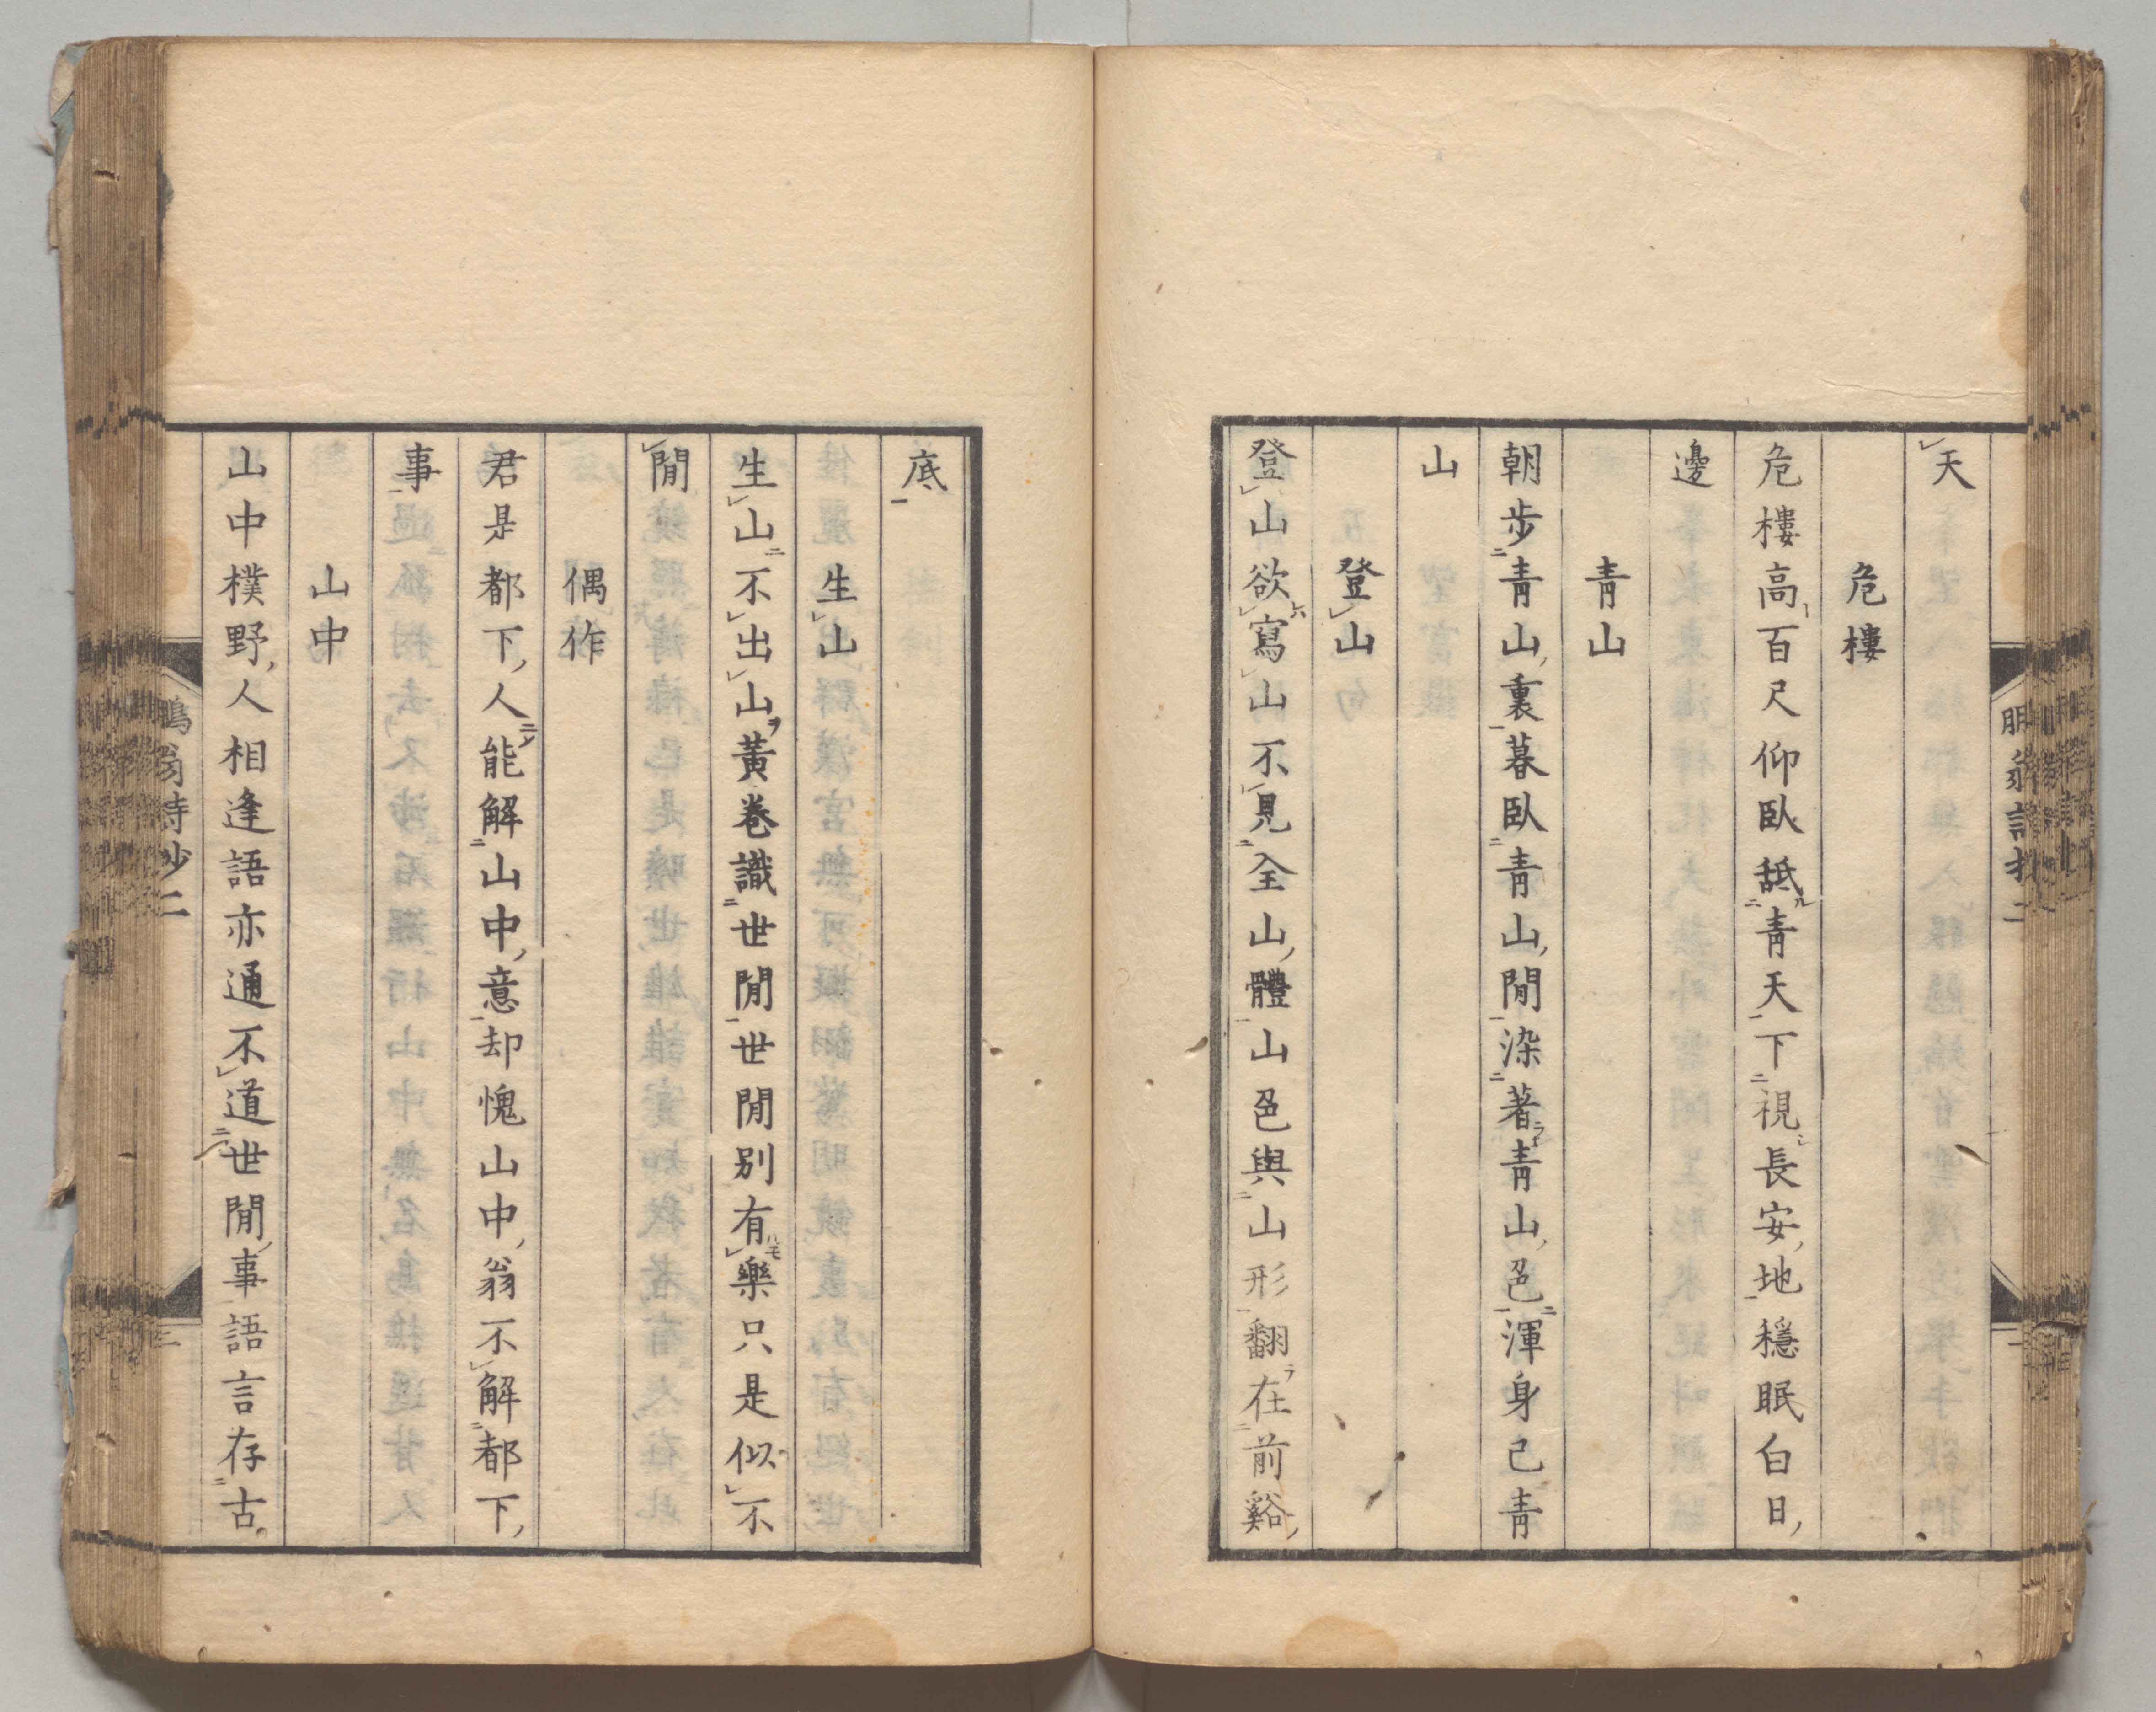 天
危樓
危樓高百尺仰臥舐青天下視長安地穩眠白日
邊
青山
朝步青山裏暮臥青山閒染著青山邑渾身已青
山
登山
登山欲寫山不見全山體山邑與山形翻在前谿
底
生山
生山不出山黃卷識世閒世閒別有樂只是似不
閒
偶作
君是都下人能解山中意却愧山中翁不解都下
事
山中
山中樸野人相逢語亦通不道世閒事語言存古
翁詩鈔二
二